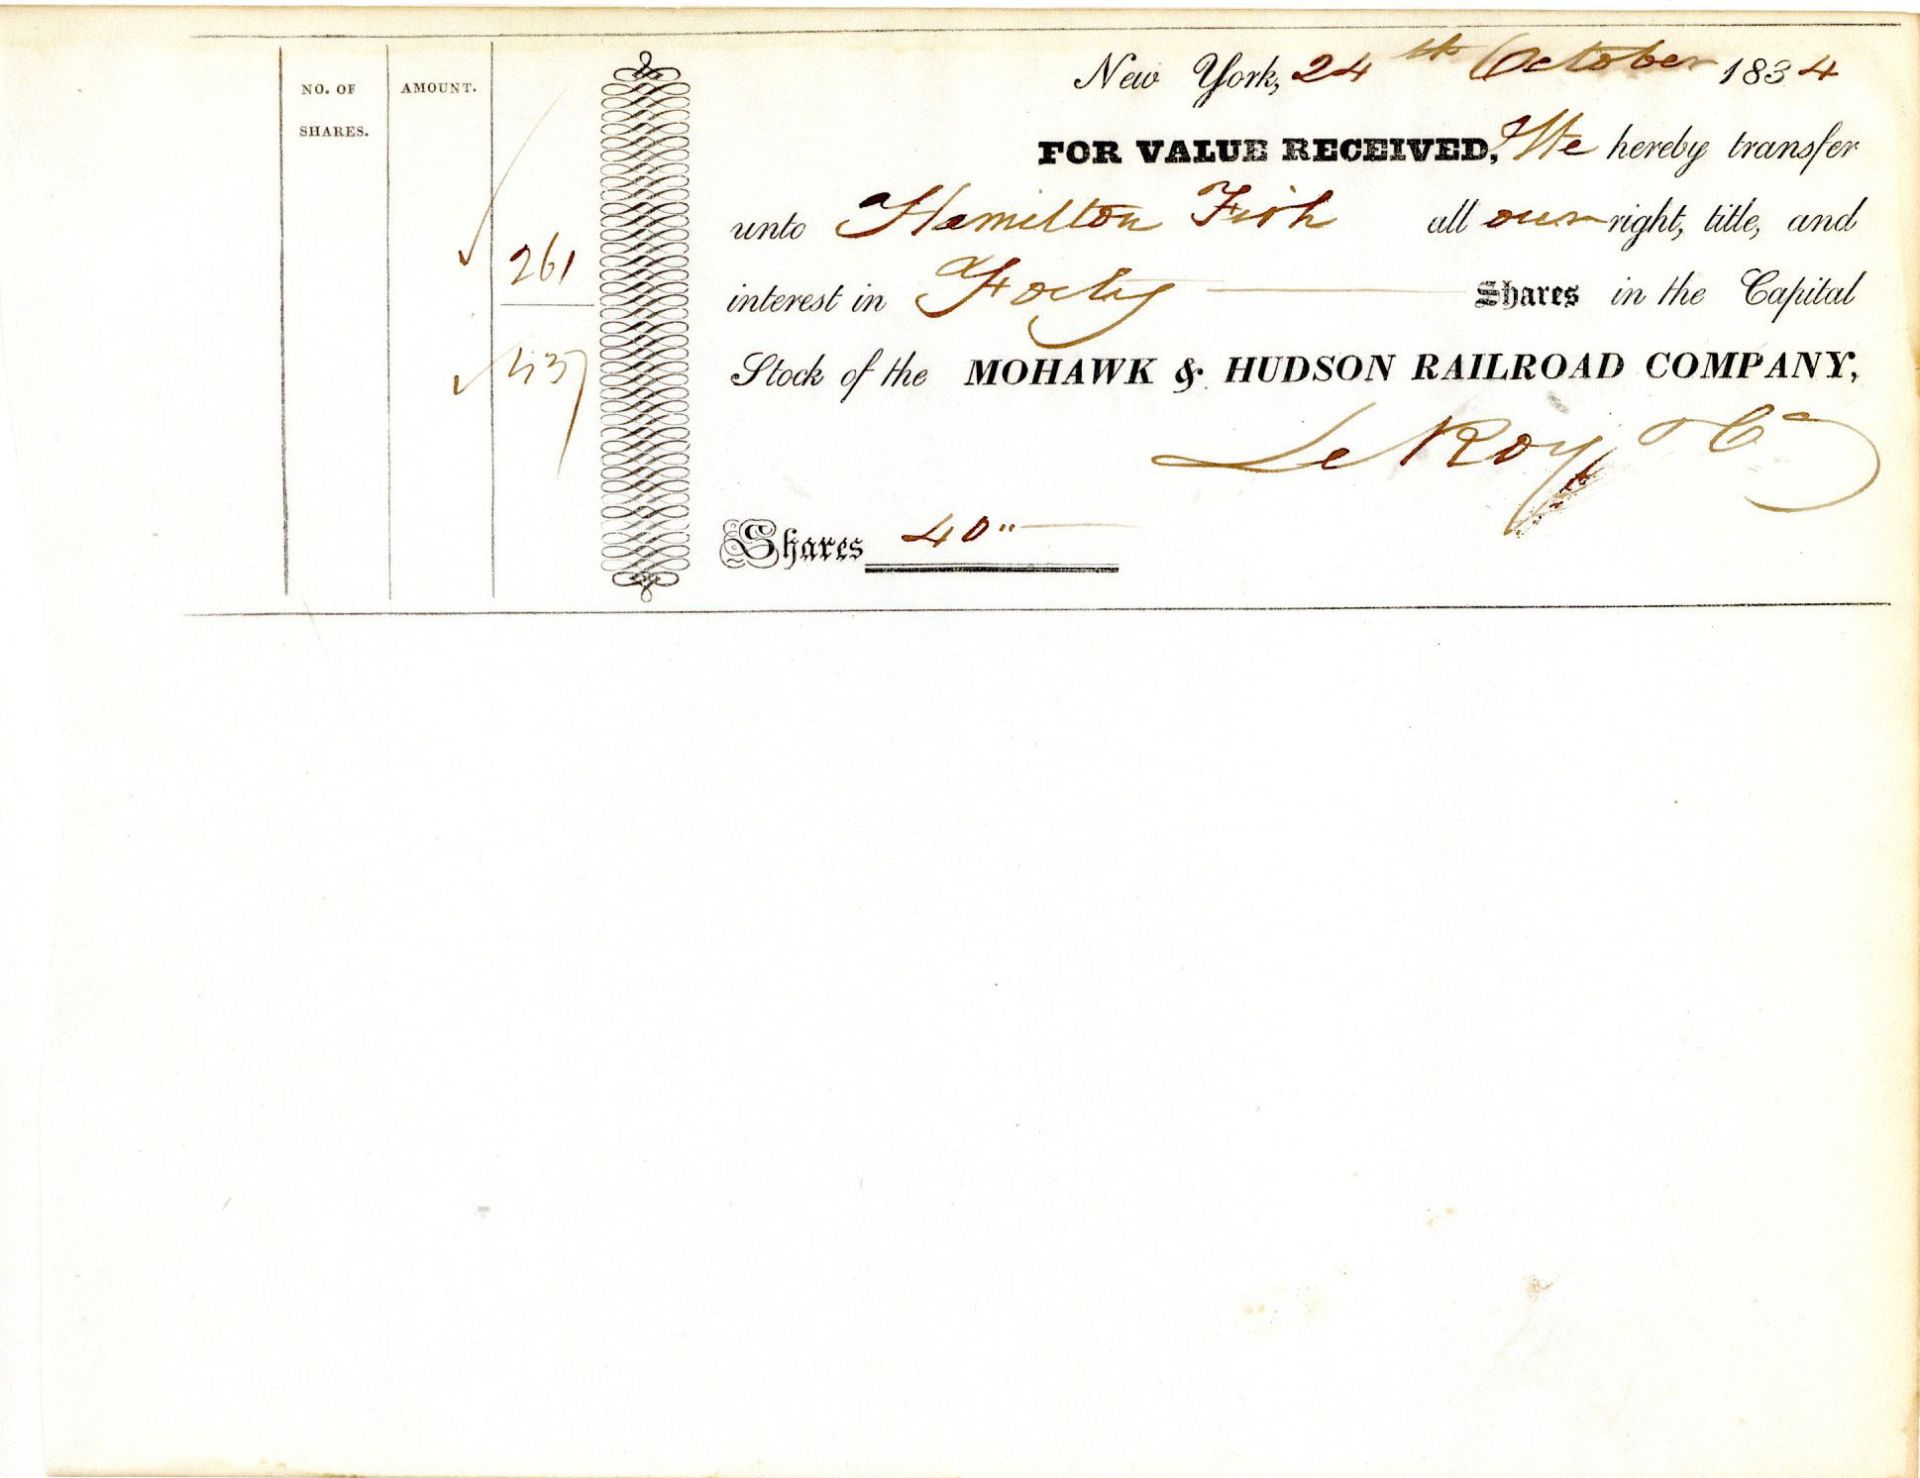 NO. OF
SHARES.
AMOUNT.
261
437
New York, 24th October 1834
FOR VALUE RECEIVED, We hereby transfer
unto Hamilton Fish all our right, title, and
interest in Forty Shares in the Capital
Stock of the MOHAWK & HUDSON RAILROAD COMPANY,
LeRoy & Co
Shares 40"